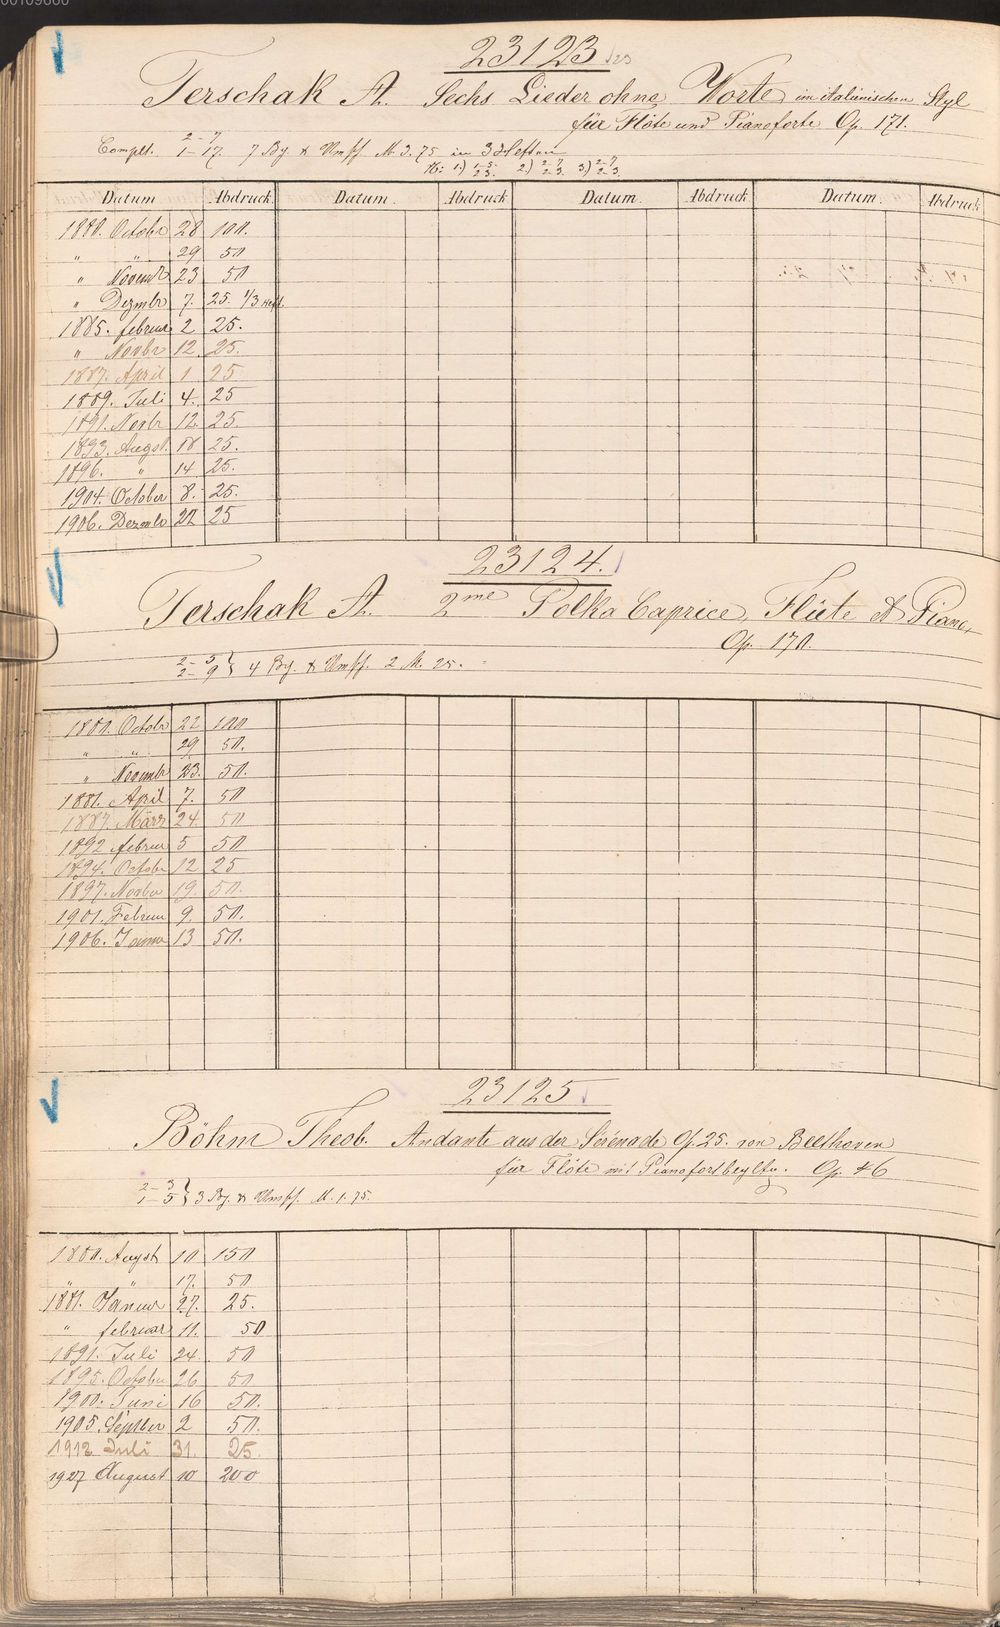 00109660
23123
Terschak A. Sechs Lieder ohne Worte im italienischen Styl
für Flöte und Pianoforte Op. 171.
2-7
Complt. 1-17. 7 Bg. & Umschl. M 3.75 in 3 Heften
Datum Abdruck Datum. Abdruck Datum. Abdruck Datum. Abdruck
1880. Octobr 28 100.
" " 29 50
" Novembr 23 50
" Dezmbr 7. 25. 1/3 Heft.
1885. februar 2 25.
" Novbr 12 25.
1887. April 1 25
1889. Juli 4. 25
1891. Novbr 12 25.
1893. Augst. 18 25.
1896. " 14 25.
1904. October 8. 25.
1906. Dezmb 22 25
23124.
Terschak A. 2me Polka Caprice, Flûte et Piano,
Op. 170.
2-5
2-9 } 4 Bg. & Umschl. 2 M. 25.
1880. Octobr 22 100
" " 29 50.
" Novembr 23. 50.
1881. April 7. 50
1887. März 24. 50
1892 februar 5 50
1894. Octobr 12 25
1897. Novbr 19. 50.
1901. Februar 9. 50.
1906. Januar 13 50.
23125
Böhm Theob. Andante aus der Serénade Op. 25. von Beethoven
für Flöte mit Pianofortbegltg. Op. 46
2-3
1-5 } 3 Bg. & Umschl. M. 1.75.
1880. Augst 10 150
" " 17. 50
1881. Januar 27. 25.
" februar 11. 50
1891. Juli 24. 50
1895. October 26 50
1900. Juni 16 50.
1905. Septber 2 50.
1912 Juli 31. 25.
1927 August 10 200